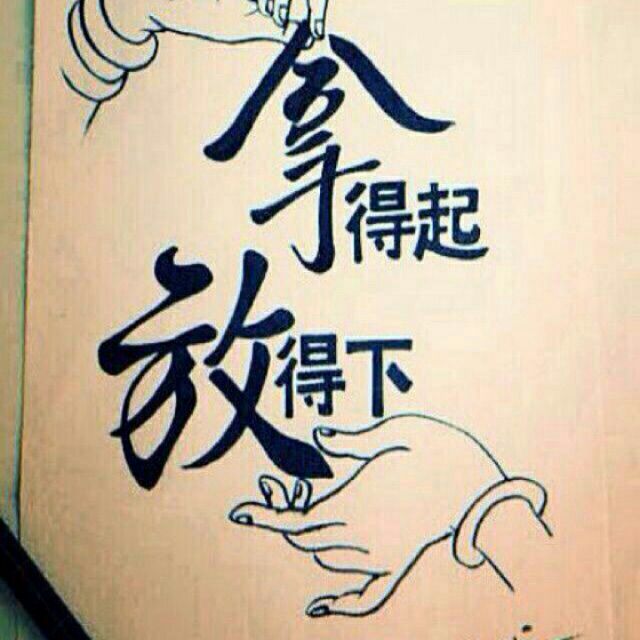 拿得起
放得下